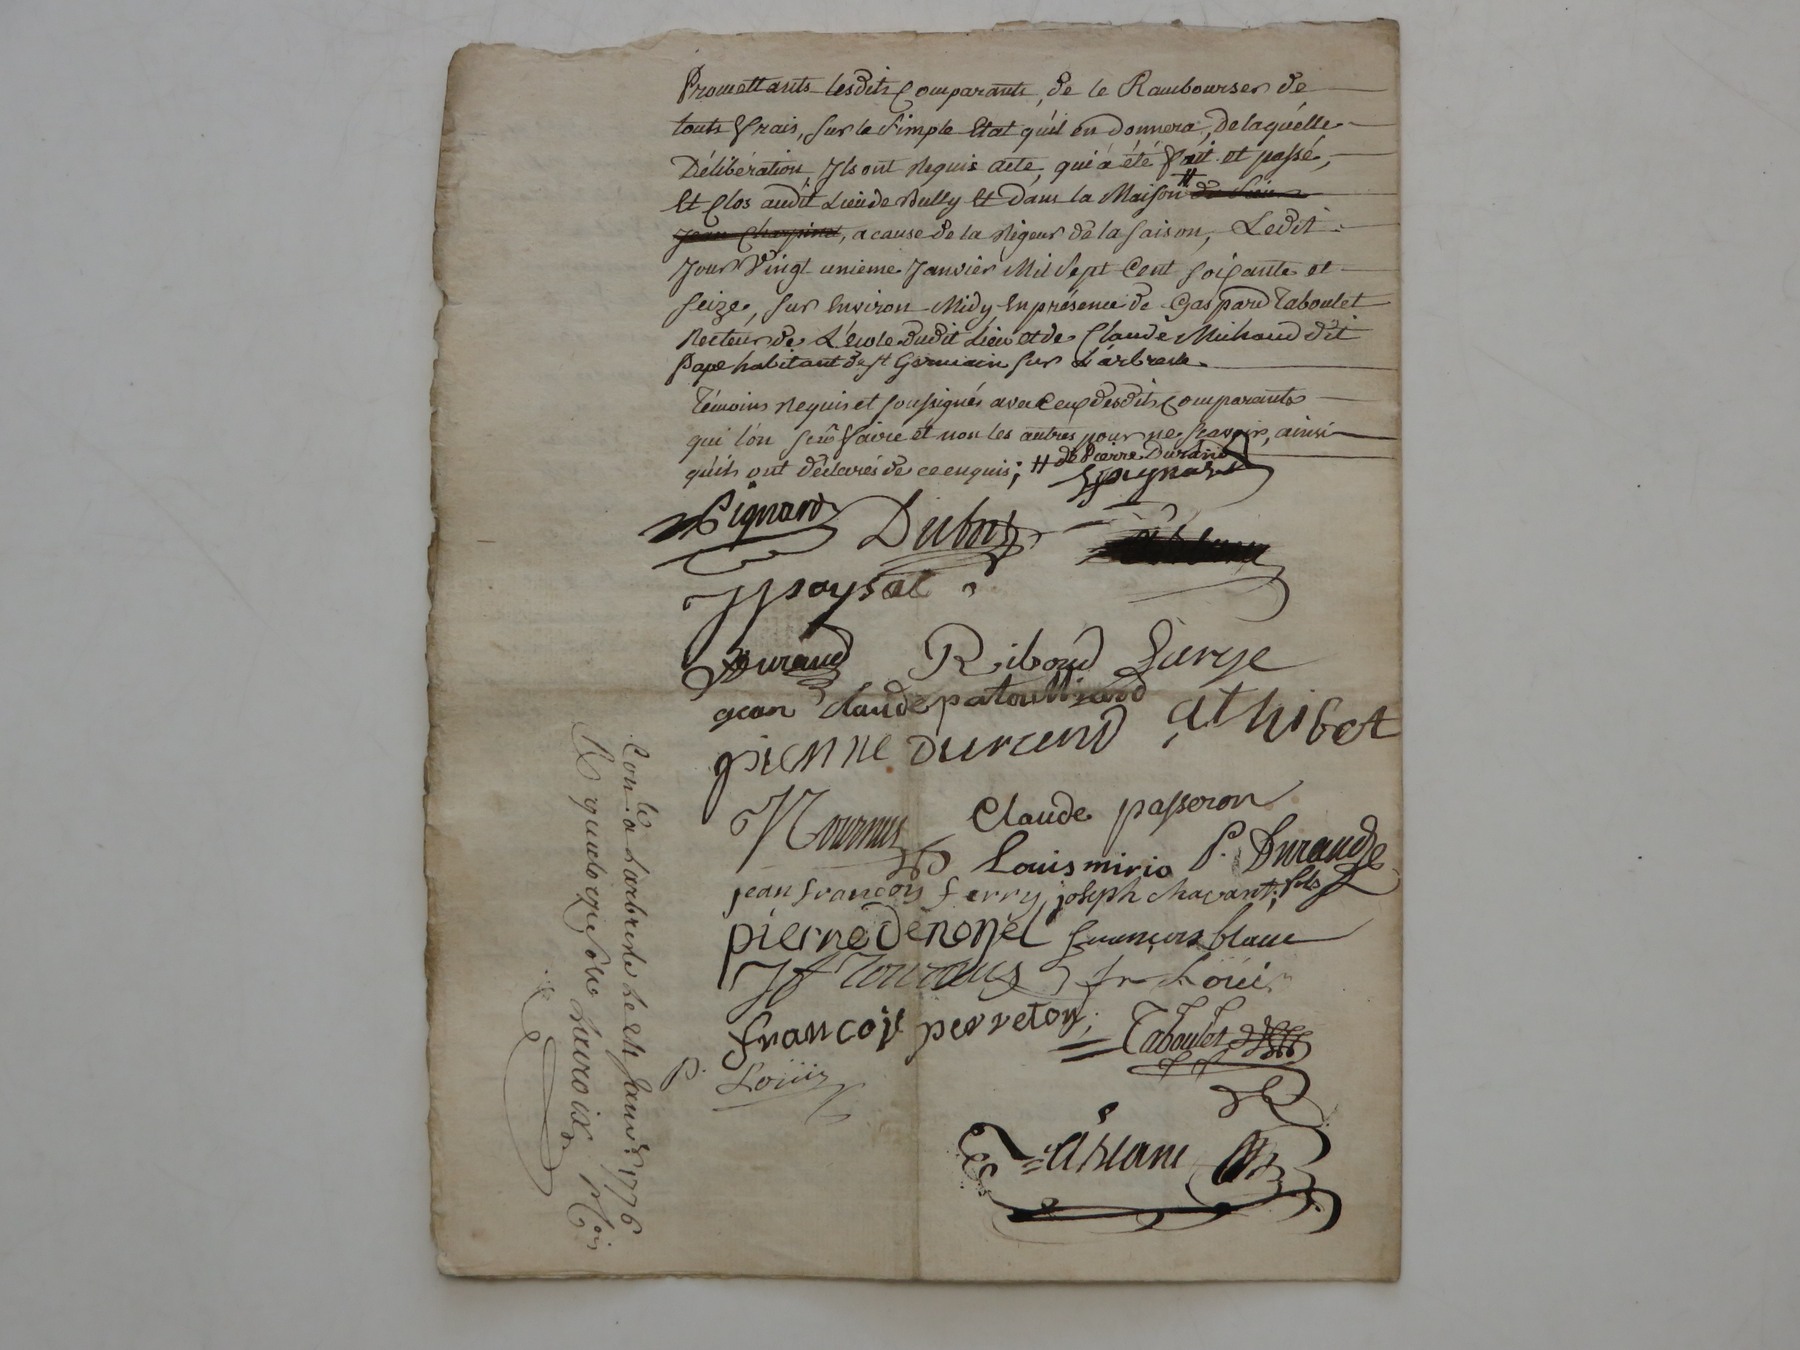 Promettants lesdits Comparants, de le Rambourser de
touts frais, sur le simple Etat qu'il en Donnera, de laquélle
Délibération, Ils ont Requis acte, qui a été fait et passé,
Et Clos audit Lieu de Bully Et Dans la Maison # de Sieur
Jean Charpinet, a cause de la Rigeur de la saison, Ledit
Jour Vingt unieme Janvier Mil Sept Cent soixante et
seize, sur Environ Midy En présence de Gaspard Taboulet
Recteur de L'école dudit Lieu et de Claude Michaud dit
Pape habitant de St Germain sur L'arbresle.
Témoins Requis et soussignés avec ceux desdits Comparants
qui l'on sçu faire et non les autres pour ne sçavoir, ainsi
qu'ils ont déclarés de ce enquis; # de Pierre Durand
Pignard
Pignard Dubost
JPaysat
Durand Riboud Large
jean Claude patouilliard
pierre Durand A thibot
Claude passeron
Louis mirio P. Durand
jean francois ferry, joseph chavant, fils
pierre Dénonel francois blanc
fr Loüis
francois perreton,
Taboulet
P. Loüis
Con.le a Larbresle Le 24 Janv.r 1776
R quatorze sols